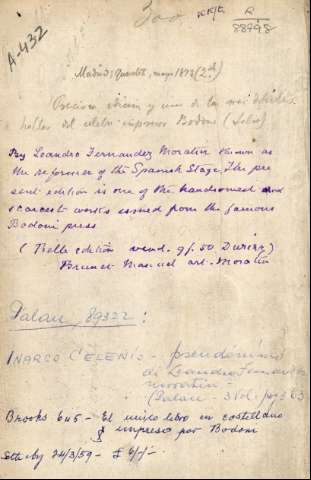 A-432
300 R
88798
Madrid: Quaritch, mayo 1873 (2nd)
Preciosa edicion y una de las mas
del celebre impresor Bodoni (Salvá)
By Leandro Fernandez Moratin known as
the reformer of the Spanish Stage. The pre
sent edition is one of the handsomest and
scarcest works issued from the famous
Bodoni press
(Belle edition vend. 9 f. 50
Brunet Manuel art. Moratin
Palau, 89322:
INARCO CELENIO - pseudónimo
de Leandro Fernandez
Moratin -
(Palau - 3 Vol. pag 63
Brooks 645 - El unico libro en castellano
impreso por Bodoni
Sotheby 24/3/59 - £ 6/-/-